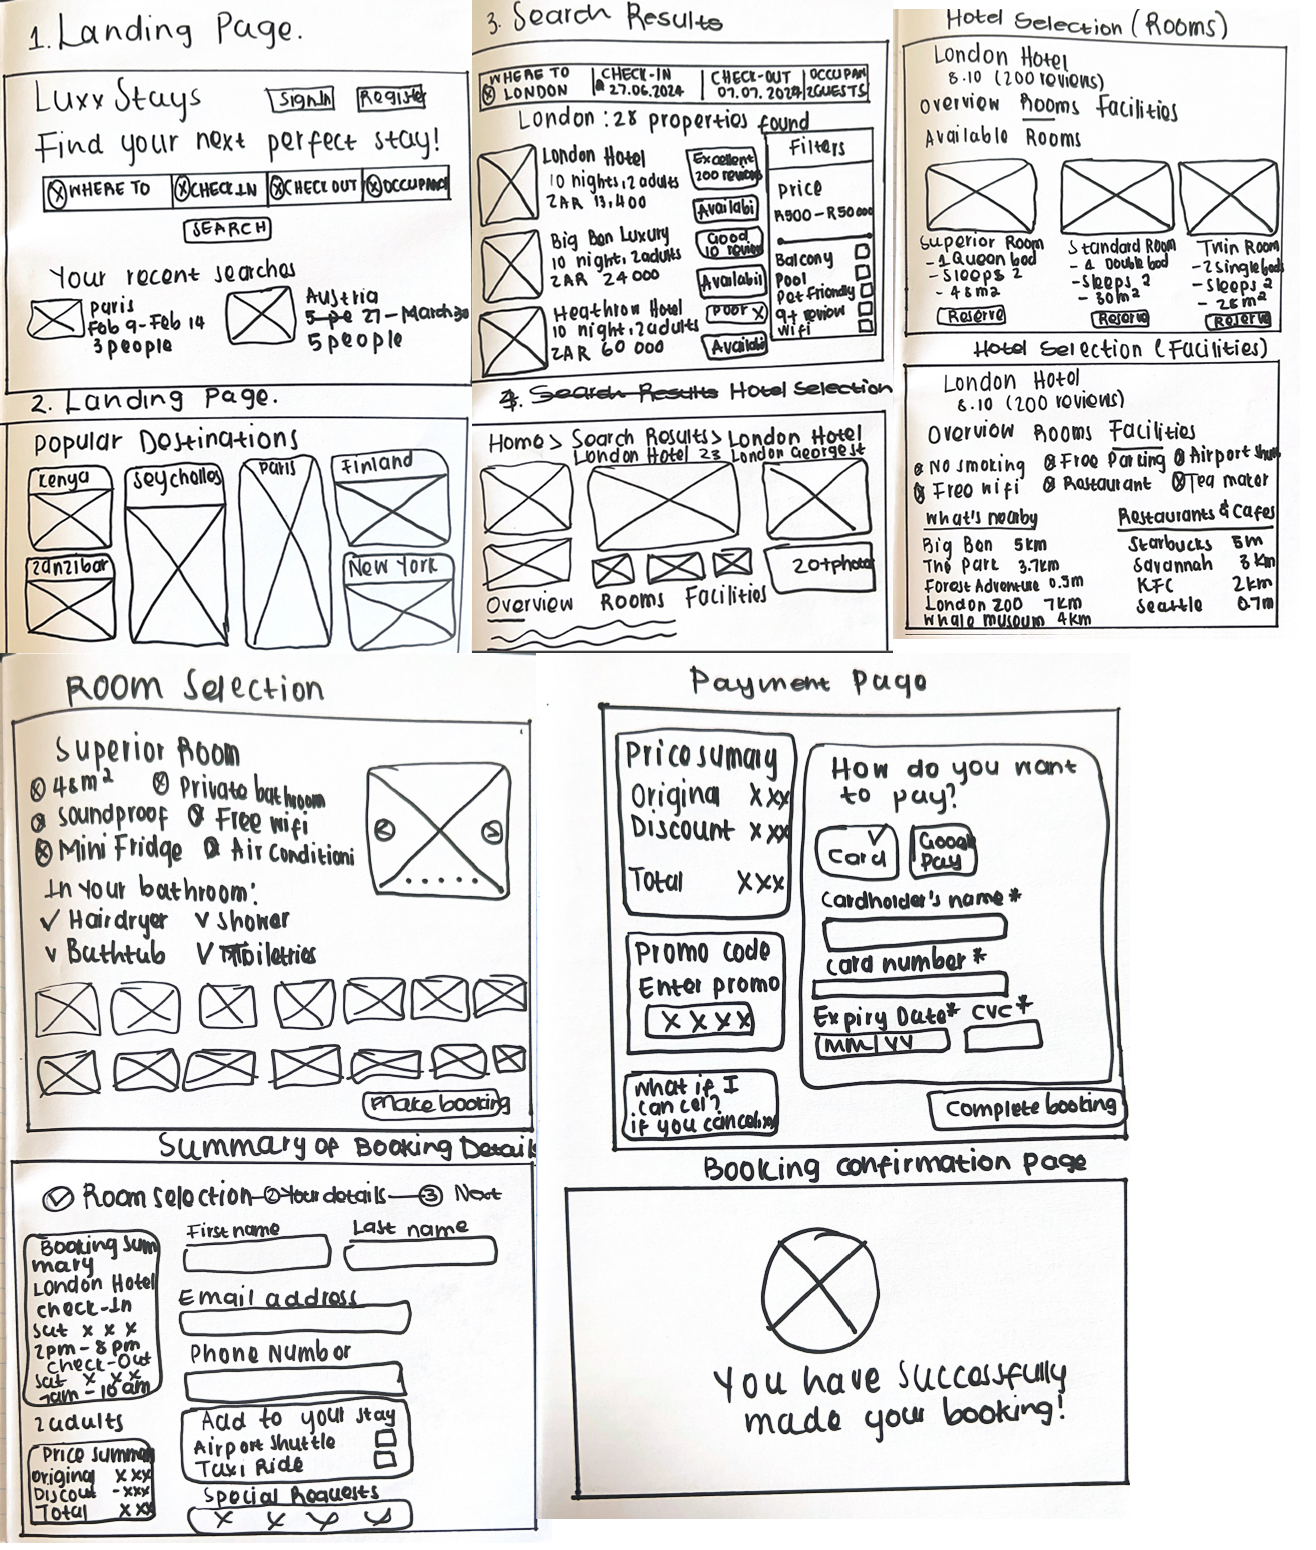 1. Landing Page.
Luxx Stays
Sign In
Register
Find your next perfect stay!
WHERE TO
CHECK IN
CHECK OUT
OCCUPAN
SEARCH
Your recent searches
Paris
Feb 9-Feb 14
3 people
Austria
27-March 30
5 people
2. Landing Page.
Popular Destinations
Kenya
Seychelles
Paris
Finland
Zanzibar
New York
3. Search Results
WHERE TO
LONDON
CHECK-IN
27.06.2024
CHECK-OUT
07.07.2024
OCCUPAN
2GUESTS
London: 28 properties found
London Hotel
10 nights, 2 adults
ZAR 13,400
Excellent
200 reviews
Availabi
Big Ben Luxury
10 night, 2 adults
ZAR 24 000
Good
10 review
Availabi
Heathrow Hotel
10 night, 2 adults
ZAR 60 000
Poor x
Availabi
Filters
Price
R500-R50000
Balcony
Pool
Pet friendly
9+ review
Wifi
4. Search Results Hotel Selection
Home> Search Results> London Hotel
London Hotel 23 London George st
20+photo
Overview Rooms Facilities
Hotel Selection (Rooms)
London Hotel
8.10 (200 reviews)
Overview Rooms Facilities
Available Rooms
Superior Room
- 1 Queen bed
- Sleeps 2
- 48m2
Reserve
Standard Room
- 1 Double bed
- Sleeps 2
- 30m2
Reserve
Twin Room
- 2 single beds
- Sleeps 2
- 28m2
Reserve
Hotel Selection (Facilities)
London Hotel
8.10 (200 reviews)
Overview Rooms Facilities
No smoking
Free Parking
Airport Shutt
Free wifi
Restaurant
Tea maker
What's nearby
Big Ben 5km
The Park 3.7km
Forest Adventure 0.9m
London Zoo 7km
Whale museum 4km
Restaurants & Cafes
Starbucks 5m
Savannah 3km
KFC 2km
Seattle 0.7m
Room Selection
Superior Room
48m2
Private bathroom
Soundproof
Free wifi
Mini Fridge
Air Conditioni
In your bathroom:
Hairdryer
Shower
Bathtub
Toiletries
Make booking
Summary of Booking Details
Room selection-2 Your details-3 Next
Booking Sum
mary
London Hotel
Check-In
Sat x x x
2pm-8pm
Check-Out
Sat x x x
7am-10am
2 adults
Price Summar
Original xxx
Discout -xxx
Total xxx
First name
Last name
Email address
Phone Number
Add to your stay
Airport Shuttle
Taxi Ride
Special Requests
x x x x
Payment Page
Price sumary
Original xxx
Discount xxx
Total xxx
Promo code
Enter promo
x x x x
What if I
cancel?
if you cancel
How do you want
to pay?
Card
Google
Pay
Cardholder's name*
Card number*
Expiry Date*
CVC*
MM/YY
Complete booking
Booking confirmation page
You have successfully
made your booking!